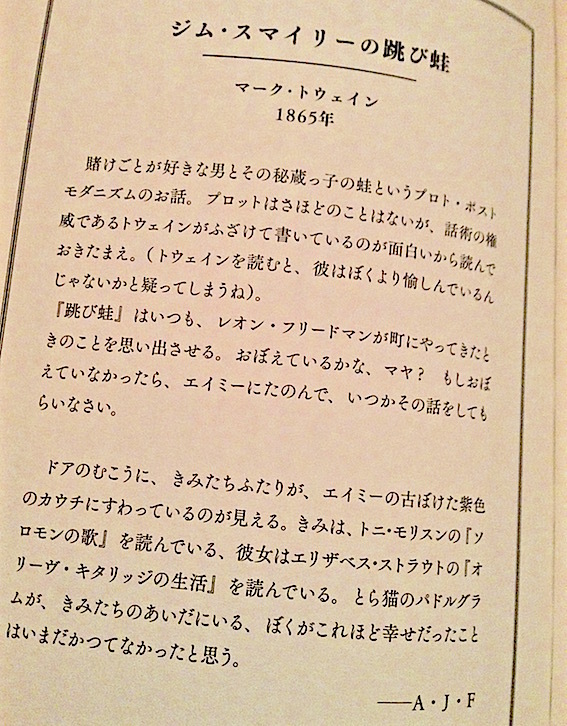 ジム・スマイリーの跳び蛙
マーク・トウェイン
1865年
賭けごとが好きな男とその秘蔵っ子の蛙というプロト・ポスト
モダニズムのお話。プロットはさほどのことはないが、話術の権
威であるトウェインがふざけて書いているのが面白いから読んで
おきたまえ。（トウェインを読むと、彼はぼくより愉しんでいるん
じゃないかと疑ってしまうね）。
『跳び蛙』はいつも、レオン・フリードマンが町にやってきたと
きのことを思い出させる。おぼえているかな、マヤ？　もしおぼ
えていなかったら、エイミーにたのんで、いつかその話をしても
らいなさい。
ドアのむこうに、きみたちふたりが、エイミーの古ぼけた紫色
のカウチにすわっているのが見える。きみは、トニ・モリスンの『ソ
ロモンの歌』を読んでいる、彼女はエリザベス・ストラウトの『オ
リーヴ・キタリッジの生活』を読んでいる。とら猫のパドルグラ
ムが、きみたちのあいだにいる、ぼくがこれほど幸せだったこと
はいまだかつてなかったと思う。
——A・J・F